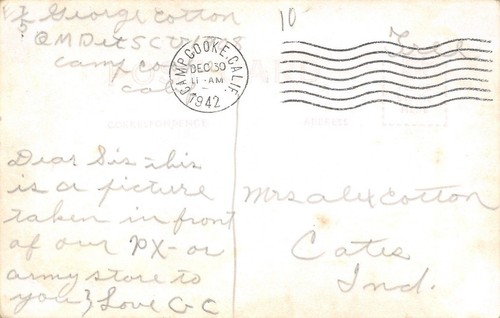 T/5 George Cotton
QM Det SCU 1908
Camp Cooke
Calif
10
CAMP COOKE, CALIF.
DEC 30
11-AM
1942
Free
POST CARD
CORRESPONDENCE
ADDRESS
Dear Sis - this
is a picture
taken in front
of our PX - or
army store to
you} Love G-C
Mrs Alex Cotton
Cates
Ind.